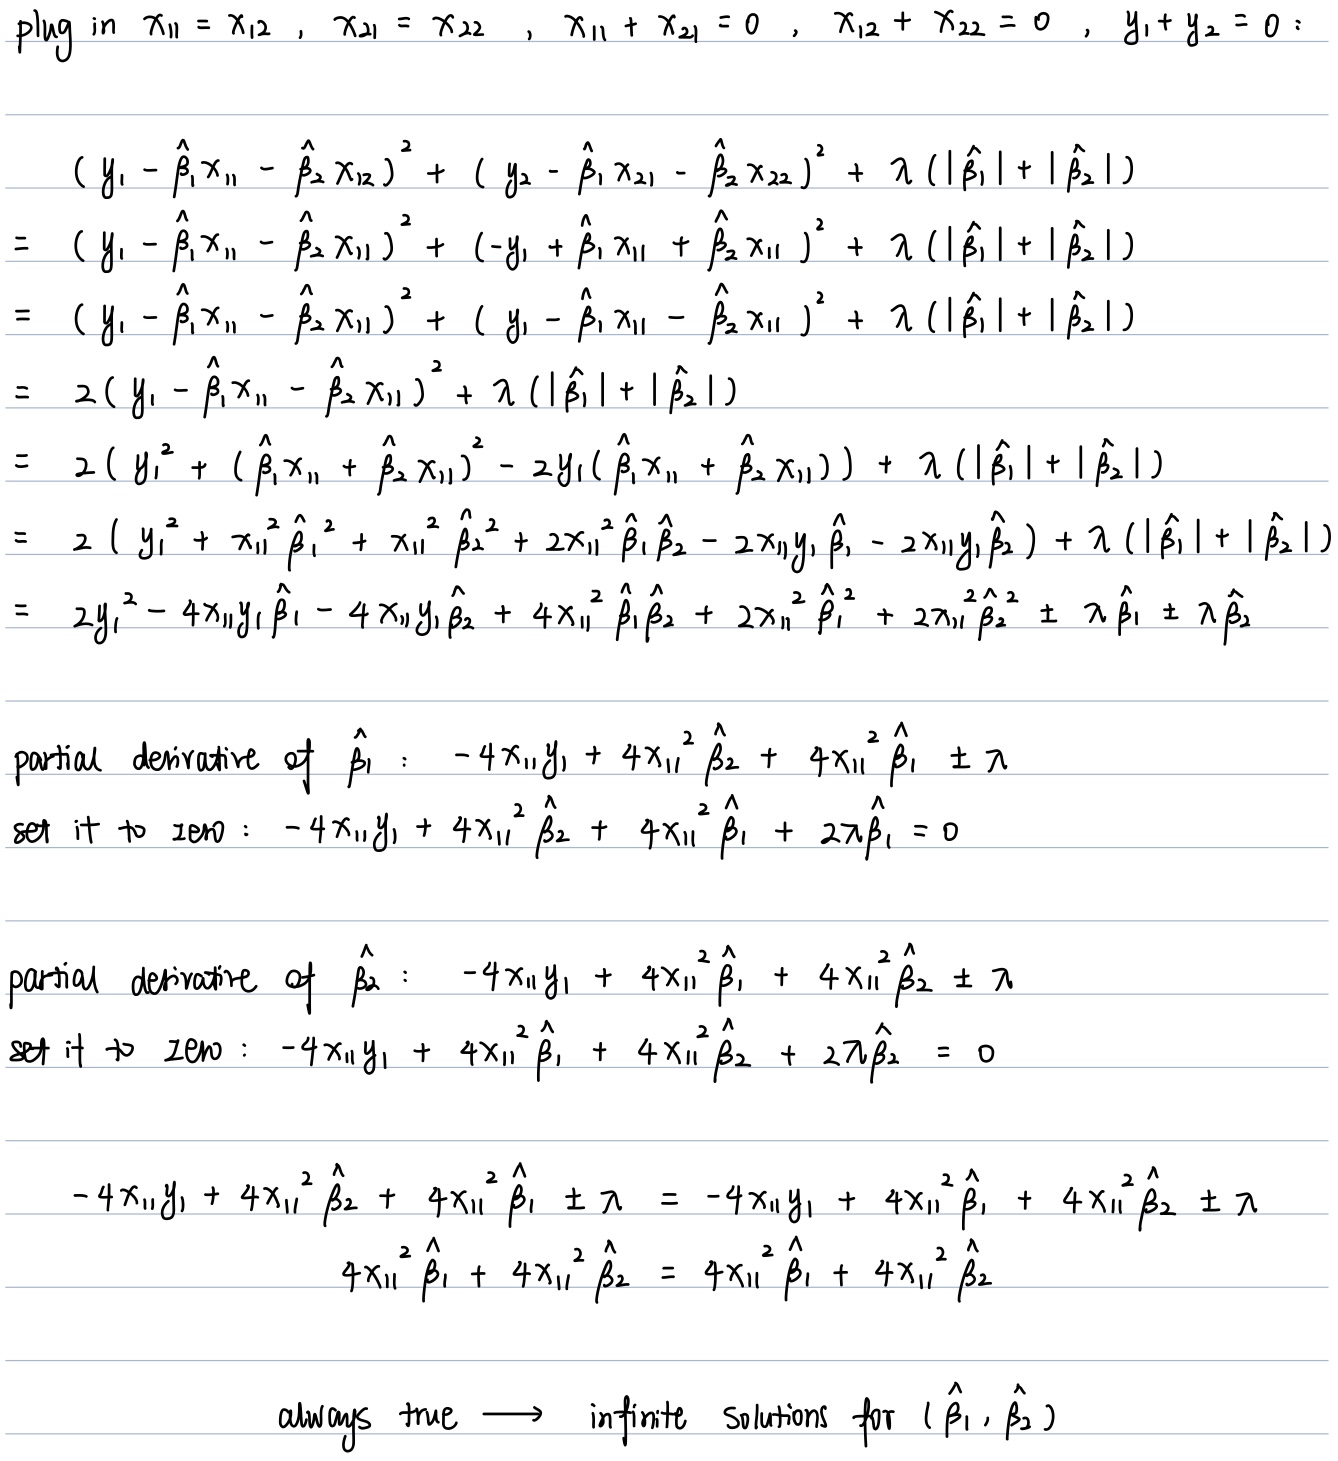 plug in x₁₁ = x₁₂ , x₂₁ = x₂₂ , x₁₁ + x₂₁ = 0 , x₁₂ + x₂₂ = 0 , y₁ + y₂ = 0 :
(y₁ - β̂₁x₁₁ - β̂₂x₁₂)² + (y₂ - β̂₁x₂₁ - β̂₂x₂₂)² + λ(|β̂₁| + |β̂₂|)
= (y₁ - β̂₁x₁₁ - β̂₂x₁₁)² + (-y₁ + β̂₁x₁₁ + β̂₂x₁₁)² + λ(|β̂₁| + |β̂₂|)
= (y₁ - β̂₁x₁₁ - β̂₂x₁₁)² + (y₁ - β̂₁x₁₁ - β̂₂x₁₁)² + λ(|β̂₁| + |β̂₂|)
= 2(y₁ - β̂₁x₁₁ - β̂₂x₁₁)² + λ(|β̂₁| + |β̂₂|)
= 2(y₁² + (β̂₁x₁₁ + β̂₂x₁₁)² - 2y₁(β̂₁x₁₁ + β̂₂x₁₁)) + λ(|β̂₁| + |β̂₂|)
= 2(y₁² + x₁₁²β̂₁² + x₁₁²β̂₂² + 2x₁₁²β̂₁β̂₂ - 2x₁₁y₁β̂₁ - 2x₁₁y₁β̂₂) + λ(|β̂₁| + |β̂₂|)
= 2y₁² - 4x₁₁y₁β̂₁ - 4x₁₁y₁β̂₂ + 4x₁₁²β̂₁β̂₂ + 2x₁₁²β̂₁² + 2x₁₁²β̂₂² ± λβ̂₁ ± λβ̂₂
partial derivative of β̂₁ : -4x₁₁y₁ + 4x₁₁²β̂₂ + 4x₁₁²β̂₁ ± λ
set it to zero : -4x₁₁y₁ + 4x₁₁²β̂₂ + 4x₁₁²β̂₁ + 2λβ̂₁ = 0
partial derivative of β̂₂ : -4x₁₁y₁ + 4x₁₁²β̂₁ + 4x₁₁²β̂₂ ± λ
set it to zero : -4x₁₁y₁ + 4x₁₁²β̂₁ + 4x₁₁²β̂₂ + 2λβ̂₂ = 0
-4x₁₁y₁ + 4x₁₁²β̂₂ + 4x₁₁²β̂₁ ± λ = -4x₁₁y₁ + 4x₁₁²β̂₁ + 4x₁₁²β̂₂ ± λ
4x₁₁²β̂₁ + 4x₁₁²β̂₂ = 4x₁₁²β̂₁ + 4x₁₁²β̂₂
always true ⟶ infinite solutions for (β̂₁, β̂₂)